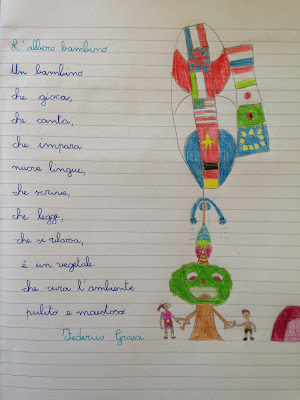 L'albero bambino
Un bambino
che gioca,
che canta,
che impara
nuove lingue,
che scrive,
che legge,
che si rilassa,
è un vegetale
che cura l'ambiente
pulito e maestoso
Federico